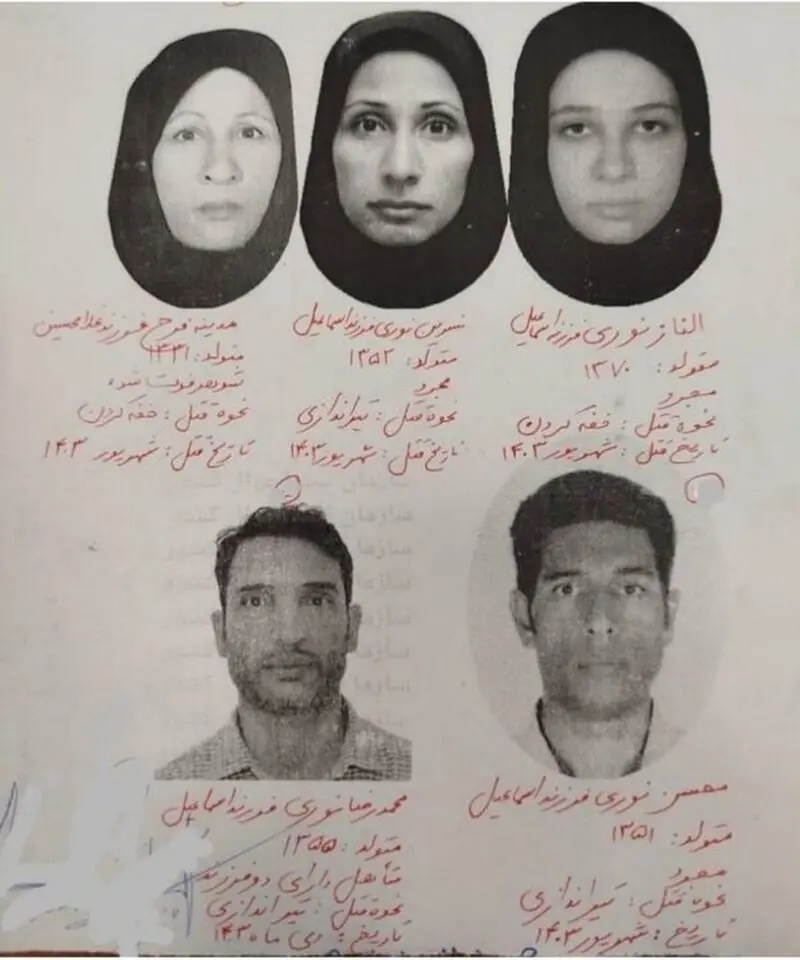 الناز نوری فرزند اسماعیل
متولد: ۱۳۷۰
مجرد
نحوه قتل : خفه کردن
تاریخ قتل : شهریور ۱۴۰۳
نسرین نوری فرزند اسماعیل
متولد: ۱۳۵۲
مجرد
نحوه قتل : تیراندازی
تاریخ قتل : شهریور ۱۴۰۳
مدینه فرزند غلامحسین
متولد: ۱۳۳۱
شوهر فوت شده
نحوه قتل : خفه کردن
تاریخ قتل : شهریور ۱۴۰۳
محسن نوری فرزند اسماعیل
متولد: ۱۳۵۱
مجرد
نحوه قتل : تیراندازی
تاریخ : شهریور ۱۴۰۳
محمدرضا نوری فرزند اسماعیل
متولد: ۱۳۵۵
متأهل دارای دو فرزند
نحوه قتل : تیراندازی
تاریخ : دی ماه ۱۴۰۳